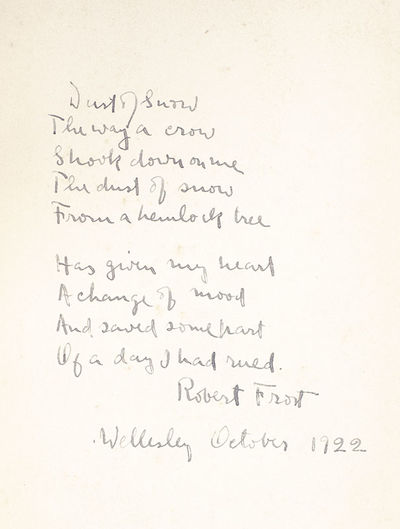 Dust of Snow
The way a crow
Shook down on me
The dust of snow
From a hemlock tree
Has given my heart
A change of mood
And saved some part
Of a day I had rued.
Robert Frost
Wellesley October 1922